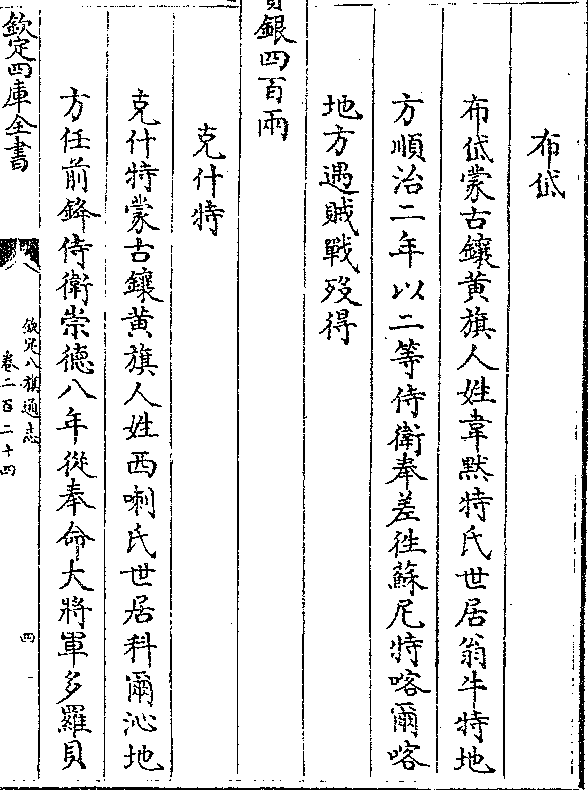 布岱
布岱蒙古鑲黃旗人姓韋黙特氏世居翁牛特地
方順治二年以二等侍衛奉差徃蘇尼特喀爾喀
地方遇賊戰歿得
銀四百兩
克什特
克什特蒙古鑲黃旗人姓西喇氏世居科爾沁地
方任前鋒侍衛崇德八年從奉命大將軍多羅貝
欽定四庫全書
欽定八旗通志
卷二百二十四
四